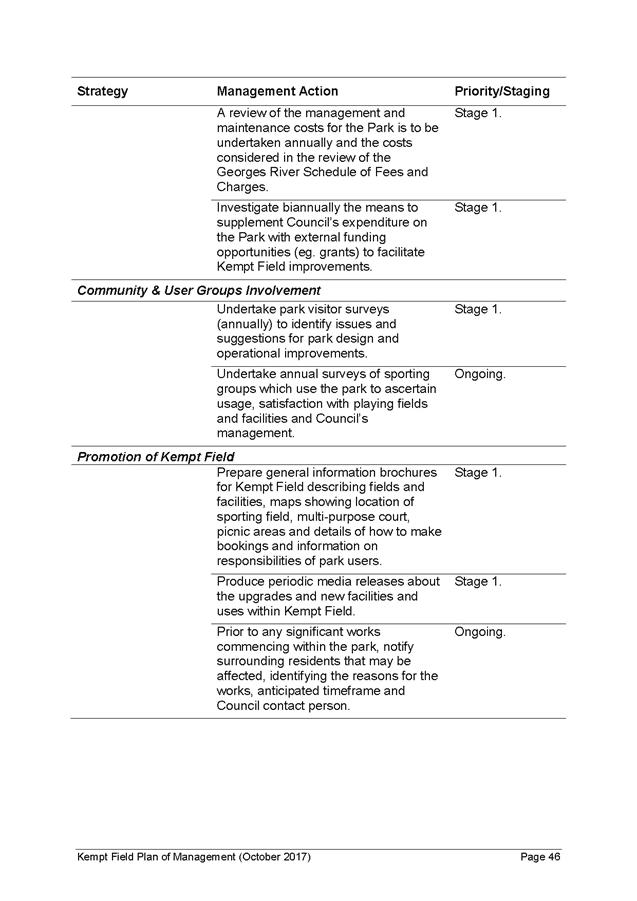 Strategy Management Action Priority/Staging
A review of the management and Stage 1.
maintenance costs for the Park is to be
undertaken annually and the costs
considered in the review of the
Georges River Schedule of Fees and
Charges.
Investigate biannually the means to Stage 1.
supplement Council's expenditure on
the Park with external funding
opportunities (eg. grants) to facilitate
Kempt Field improvements.
Community & User Groups Involvement
Undertake park visitor surveys Stage 1.
(annually) to identify issues and
suggestions for park design and
operational improvements.
Undertake annual surveys of sporting Ongoing.
groups which use the park to ascertain
usage, satisfaction with playing fields
and facilities and Council's
management.
Promotion of Kempt Field
Prepare general information brochures Stage 1.
for Kempt Field describing fields and
facilities, maps showing location of
sporting field, multi-purpose court,
picnic areas and details of how to make
bookings and information on
responsibilities of park users.
Produce periodic media releases about Stage 1.
the upgrades and new facilities and
uses within Kempt Field.
Prior to any significant works Ongoing.
commencing within the park, notify
surrounding residents that may be
affected, identifying the reasons for the
works, anticipated timeframe and
Council contact person.
Kempt Field Plan of Management (October 2017) Page 46